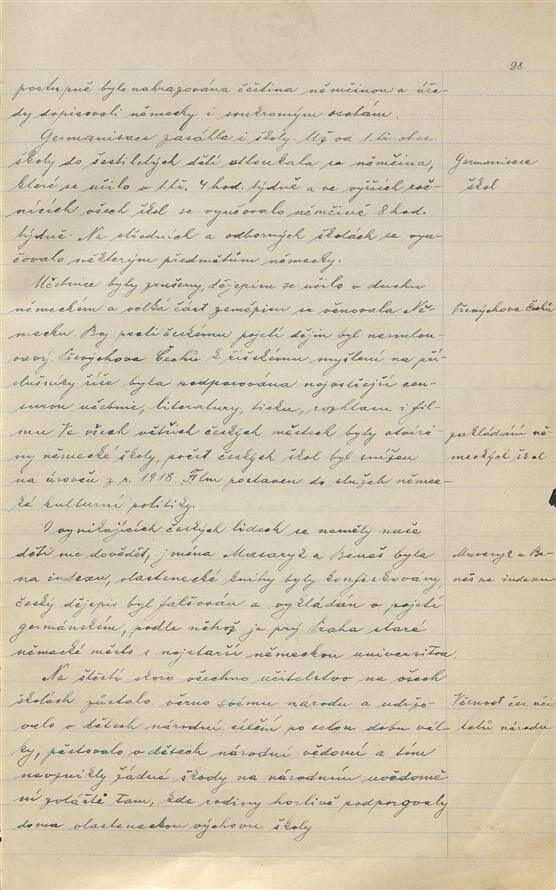 98
postupně byla nahrazována čeština němčinou a úřa-
dy dopisovali německy i soukromým osobám.
Germanisace zasáhla i školy. Již od 1. tř. obec.
školy do šestiletých dětí vtloukala se němčina,
které se učilo v 1. tř. 4 hod. týdně a ve vyšších roč-
nících všech škol se vyučovalo němčině 8 hod.
týdně. Na středních a odborných školách se vyu-
čovalo některým předmětům německy.
Germanisace
škol
Učebnice byly zrušeny, dějepisu se učilo v duchu
německém a velká část zeměpisu se věnovala Ně-
mecku. Boj proti českému pojetí dějin byl nesmlou-
vavý. Převýchova Čechů k říšskému myšlení na pří-
slušníky říše byla podporována nejostřejší cen-
surou učebnic, literatury, tisku, rozhlasu i fil-
mu. Ve všech větších českých městech byly otvírá-
ny německé školy, počet českých škol byl snížen
na úroveň z r. 1918. Film postaven do služeb němec-
ké kulturní politiky.
Převýchova Čechů
zakládání ně-
meckých škol
O vynikajících českých lidech se neměly naše
děti nic dovědět, jména Masaryk a Beneš byla
na indexu, vlastenecké knihy byly konfiskovány,
český dějepis byl falšován a vykládán v pojetí
germánském, podle něhož je prý Praha staré
německé město s nejstarší německou universitou.
Masaryk a Be-
neš na indexu
Na štěstí skoro všechno učitelstvo na všech
školách zůstalo věrno svému národu a udržo-
valo v dětech národní cítění po celou dobu vál-
ky, pěstovalo v dětech národní vědomí a tím
nevznikly žádné škody na národním uvědomě-
ní zvláště tam, kde rodiny horlivě podporovaly
doma vlasteneckou výchovu školy
Věrnost čes. uči-
telů národu